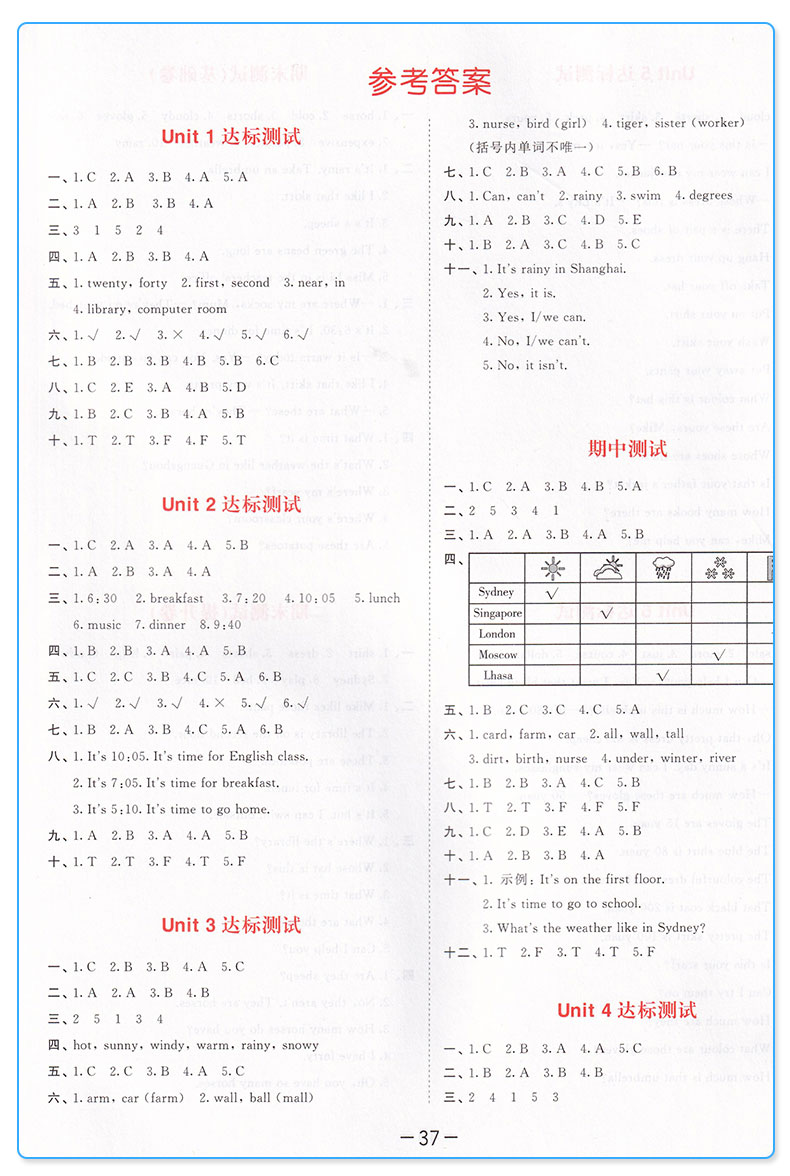 参考答案
Unit 1 达标测试
一、1.C 2.A 3.B 4.A 5.A
二、1.A 2.B 3.B 4.A
三、3 1 5 2 4
四、1.A 2.B 3.B 4.A
五、1. twenty, forty 2. first, second 3. near, in
4. library, computer room
六、1.√ 2.√ 3.× 4.√ 5.√ 6.√
七、1.B 2.B 3.B 4.B 5.B 6.C
八、1.C 2.E 3.A 4.B 5.D
九、1.B 2.C 3.B 4.A 5.B
十、1.T 2.T 3.F 4.F 5.T
Unit 2 达标测试
一、1.C 2.A 3.A 4.A 5.B
二、1.A 2.B 3.A 4.A
三、1.6:30 2. breakfast 3.7:20 4.10:05 5. lunch
6. music 7. dinner 8.9:40
四、1.B 2.B 3.A 4.A 5.B
五、1.C 2.C 3.B 4.C 5.A 6.B
六、1.√ 2.√ 3.√ 4.× 5.√ 6.√
七、1.B 2.A 3.B 4.C 5.A 6.B
八、1. It's 10:05. It's time for English class.
2. It's 7:05. It's time for breakfast.
3. It's 5:10. It's time to go home.
九、1.A 2.B 3.A 4.A 5.B
十、1.T 2.T 3.F 4.T 5.F
Unit 3 达标测试
一、1.C 2.B 3.B 4.A 5.C
二、1.A 2.A 3.B 4.B
三、2 5 1 3 4
四、hot, sunny, windy, warm, rainy, snowy
五、1.C 2.C 3.A 4.A 5.C
六、1. arm, car (farm) 2. wall, ball (mall)
3. nurse, bird (girl) 4. tiger, sister (worker)
(括号内单词不唯一)
七、1.C 2.B 3.A 4.C 5.B 6.B
八、1. Can, can't 2. rainy 3. swim 4. degrees
九、1.A 2.B 3.C 4.D 5.E
十、1.B 2.A 3.C 4.B 5.C
十一、1. It's rainy in Shanghai.
2. Yes, it is.
3. Yes, I/we can.
4. No, I/we can't.
5. No, it isn't.
期中测试
一、1.C 2.A 3.B 4.B 5.A
二、2 5 3 4 1
三、1.A 2.A 3.B 4.A 5.B
四、
Sydney √
Singapore √
London
Moscow √
Lhasa √
五、1.B 2.C 3.C 4.C 5.A
六、1. card, farm, car 2. all, wall, tall
3. dirt, birth, nurse 4. under, winter, river
七、1.B 2.B 3.A 4.C 5.B
八、1.T 2.T 3.F 4.F 5.F
九、1.C 2.D 3.E 4.A 5.B
十、1.A 2.B 3.B 4.A
十一、1. 示例: It's on the first floor.
2. It's time to go to school.
3. What's the weather like in Sydney?
十二、1.T 2.F 3.T 4.T 5.F
Unit 4 达标测试
一、1.C 2.B 3.A 4.A 5.C
二、1.B 2.A 3.B 4.B
三、2 4 1 5 3
— 37 —